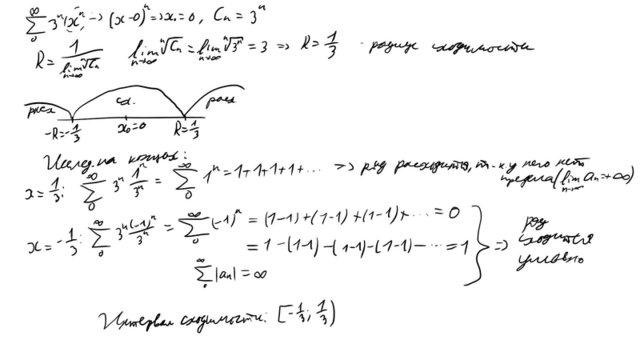 ∑₀^∞ 3ⁿxⁿ → (x-0)ⁿ ⇒ x₀=0, Cₙ = 3ⁿ
R = 1/lim_{n→∞} ⁿ√Cₙ lim_{n→∞} ⁿ√Cₙ = lim_{n→∞} ⁿ√3ⁿ = 3 ⇒ R = 1/3 - радиус сходимости
расх сх. расх
-R=-1/3 x₀=0 R=1/3
Исслед. на концах:
x = 1/3: ∑₀^∞ 3ⁿ 1ⁿ/3ⁿ = ∑₀^∞ 1ⁿ = 1+1+1+1+... ⇒ ряд расходится, т-к у него нет
предела (lim_{n→∞} aₙ = +∞)
x = -1/3: ∑₀^∞ 3ⁿ(-1)ⁿ/3ⁿ = ∑₀^∞ (-1)ⁿ = (1-1)+(1-1)+(1-1)+... = 0
= 1-(1-1)-(1-1)-(1-1)-... = 1 ⇒ ряд сходится условно
∑₀^∞ |aₙ| = ∞
Интервал сходимости: [-1/3; 1/3)